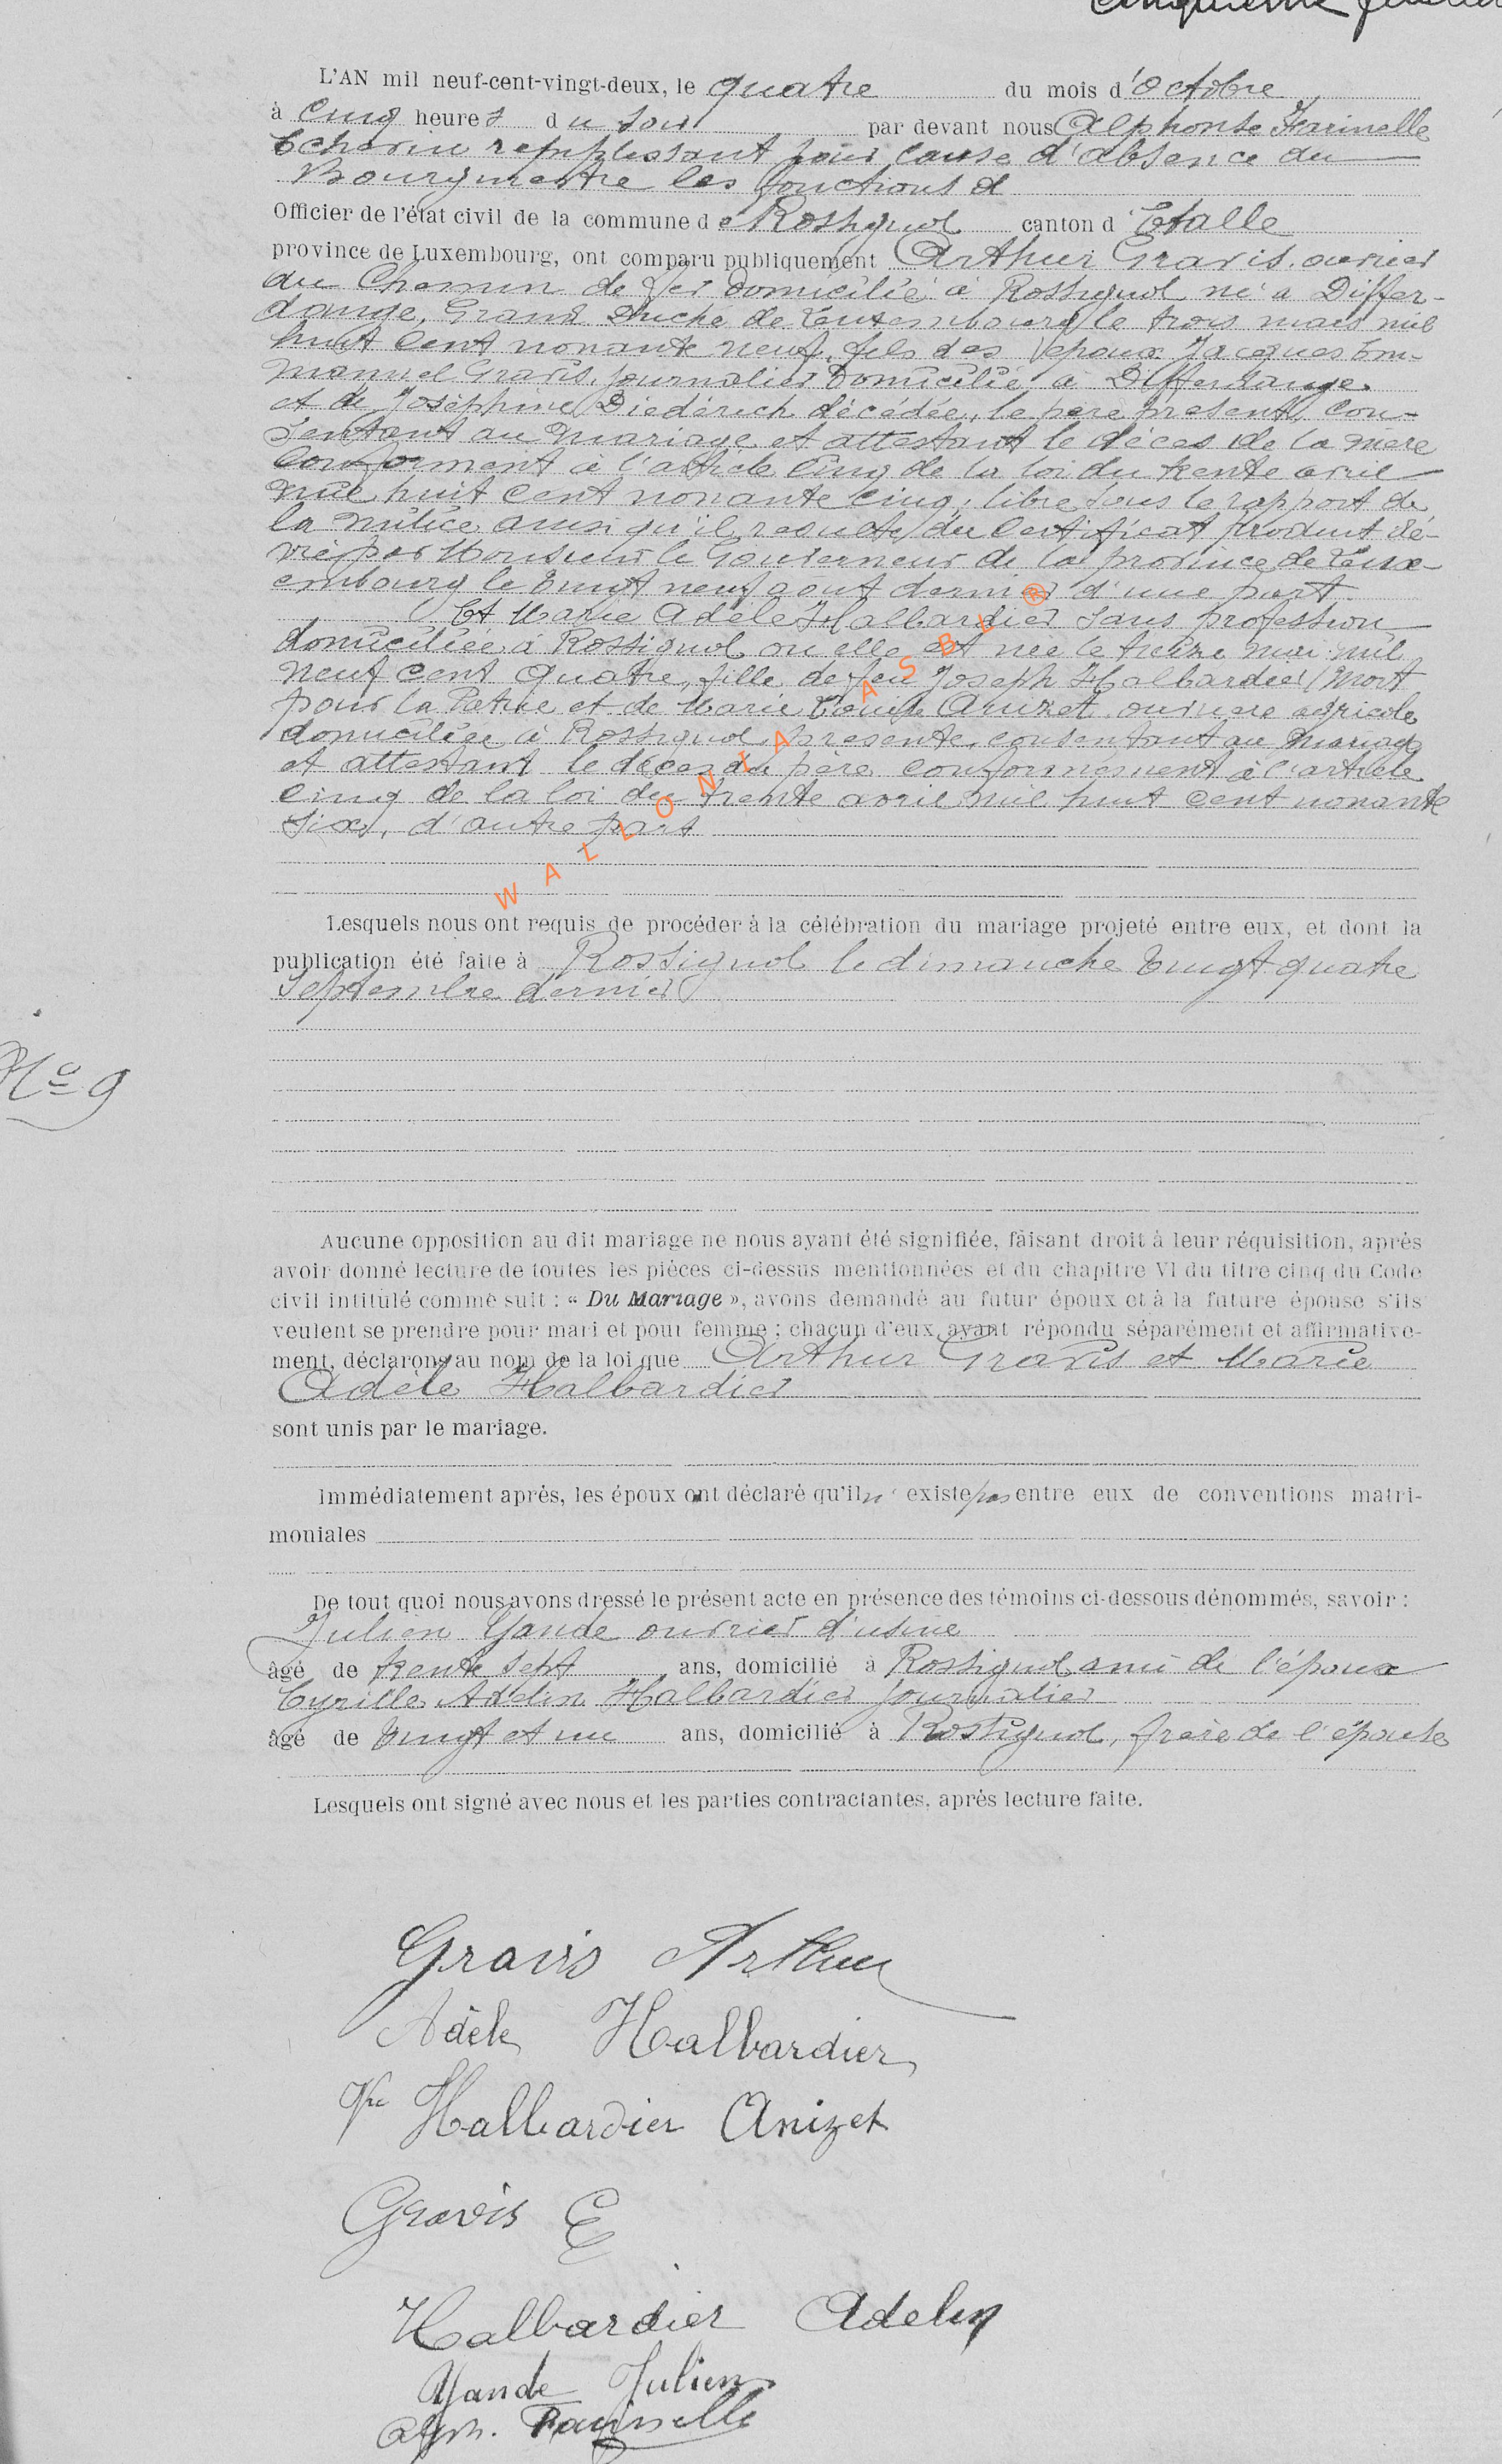 cinquième feuillet
L'AN mil neuf-cent-vingt-deux, le quatre du mois d'Octobre
à cinq heures du soir par devant nous Alphonse Farinelle
Echevin remplissant pour cause d'absence du
Bourgmestre les fonctions d
Officier de l'état civil de la commune de Rossignol canton d'Etalle
province de Luxembourg, ont comparu publiquement Arthur Gravis, ouvrier
au Chemin de fer domicilié à Rossignol né à Differ-
dange, Grand Duché de Luxembourg le trois mars mil
huit cent nonante neuf, fils des époux Jacques Em-
manuel Gravis, journalier domicilié à Differdange
et de Joséphine Diederich décédée, le père présent, con-
sentant au mariage et attestant le décès de la mère
conforment à l'article cinq de la loi du trente avril
mil huit cent nonante cinq, libre sous le rapport de
la milice ainsi qu'il résulte du certificat produit dé-
vré par Monsieur le Gouverneur de la province de Lux-
embourg le vingt neuf août dernier d'une part.
Et Marie Adèle Halbardier sans profession
domiciliée à Rossignol où elle est née le treize mai mil
neuf cent quatre, fille de feu Joseph Halbardier (mort
pour la Patrie et de Marie Louise Anizet, ouvrière agricole
domiciliée à Rossignol, présente, consentant au mariage
et attestant le décès du père conformément à l'article
cinq de la loi du trente avril mil huit cent nonante
six, d'autre part
WALLONIA ASBL ®
Lesquels nous ont requis de procéder à la célébration du mariage projeté entre eux, et dont la
publication été faite à Rossignol le dimanche vingt quatre
Septembre dernier
No 9
Aucune opposition au dit mariage ne nous ayant été signifiée, faisant droit à leur réquisition, après
avoir donné lecture de toutes les pièces ci-dessus mentionnées et du chapitre VI du titre cinq du Code
civil intitulé comme suit : « Du Mariage », avons demandé au futur époux et à la future épouse s'ils
veulent se prendre pour mari et pour femme ; chacun d'eux ayant répondu séparément et affirmative-
ment, déclarons au nom de la loi que Arthur Gravis et Marie
Adèle Halbardier
sont unis par le mariage.
Immédiatement après, les époux ont déclaré qu'il n'existe pas entre eux de conventions matri-
moniales
De tout quoi nous avons dressé le présent acte en présence des témoins ci-dessous dénommés, savoir :
Julien Yande ouvrier d'usine
âgé de trente sept ans, domicilié à Rossignol, ami de l'époux
Cyrille Adelin Halbardier journalier
âgé de vingt et un ans, domicilié à Rossignol, frère de l'épouse
Lesquels ont signé avec nous et les parties contractantes, après lecture faite.
Gravis Arthur
Adèle Halbardier
Vve Halbardier Anizet
Gravis E
Halbardier Adelin
Yande Julien
Alph. Farinelle